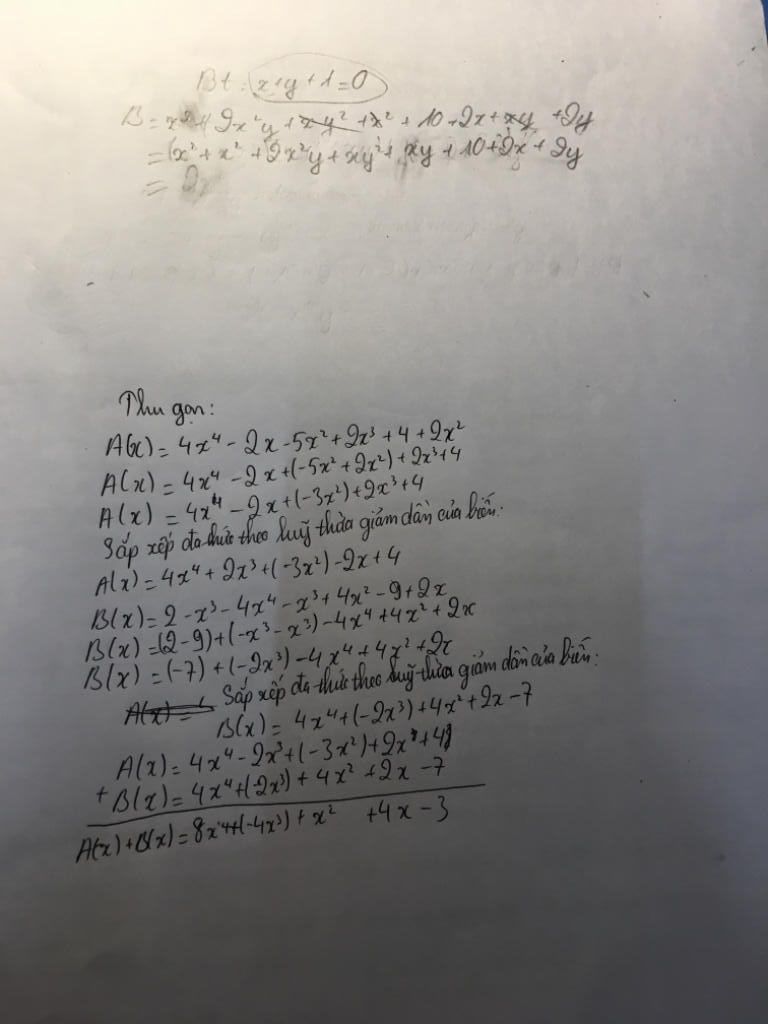 Bt: x+y+1=0
B = x³ + 2x²y + xy² + x² + 10 + 2x + xy + 2y
= (x³ + x² + 2x²y + xy² + xy + 10 + 2x + 2y
= 2
Thu gọn:
A(x) = 4x⁴ - 2x - 5x² + 2x³ + 4 + 2x²
A(x) = 4x⁴ - 2x + (-5x² + 2x²) + 2x³ + 4
A(x) = 4x⁴ - 2x + (-3x²) + 2x³ + 4
Sắp xếp đa thức theo luỹ thừa giảm dần của biến:
A(x) = 4x⁴ + 2x³ + (-3x²) - 2x + 4
B(x) = 2 - x³ - 4x⁴ - x³ + 4x² - 9 + 2x
B(x) = (2 - 9) + (-x³ - x³) - 4x⁴ + 4x² + 2x
B(x) = (-7) + (-2x³) - 4x⁴ + 4x² + 2x
Sắp xếp đa thức theo luỹ thừa giảm dần của biến:
B(x) = 4x⁴ + (-2x³) + 4x² + 2x - 7
A(x) = 4x⁴ - 2x³ + (-3x²) + 2x + 4
+ B(x) = 4x⁴ + (-2x³) + 4x² + 2x - 7
A(x) + B(x) = 8x⁴ + (-4x³) + x² + 4x - 3